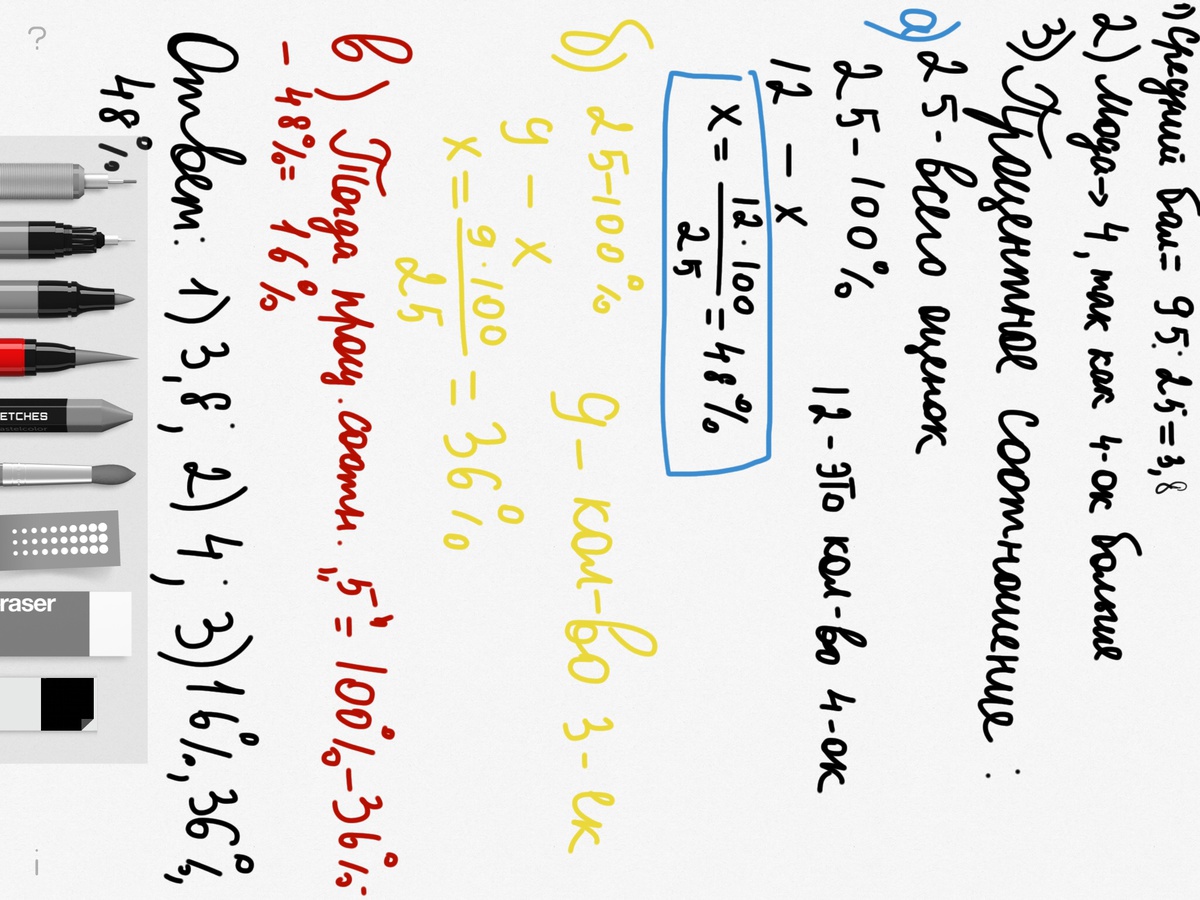 1) Средний бал = 95 : 25 = 3,8
2) Мода → 4, так как 4-ок больше
3) Процентное соотношение :
а) 25 - всего оценок
25 - 100% 12 - это кол-во 4-ок
12 - x
x = 12 · 100 / 25 = 48%
б) 25-100% 9 - кол-во 3-ек
9 - x
x = 9 · 100 / 25 = 36%
в) Тогда проц. соотн. „5“ = 100% - 36% -
- 48% = 16%
Ответ: 1) 3,8; 2) 4; 3) 16%, 36%,
48%
?
i
ETCHES
raser